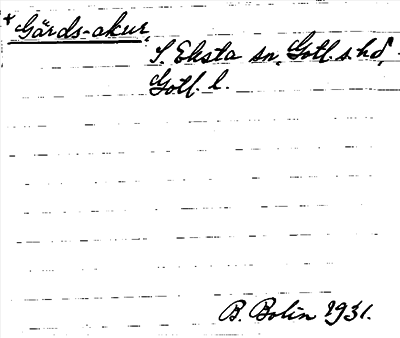 × Gärds-akur,
S. Eksta sn, Gotl. s. hd,
Gotl. l.
B. Bolin 1931.